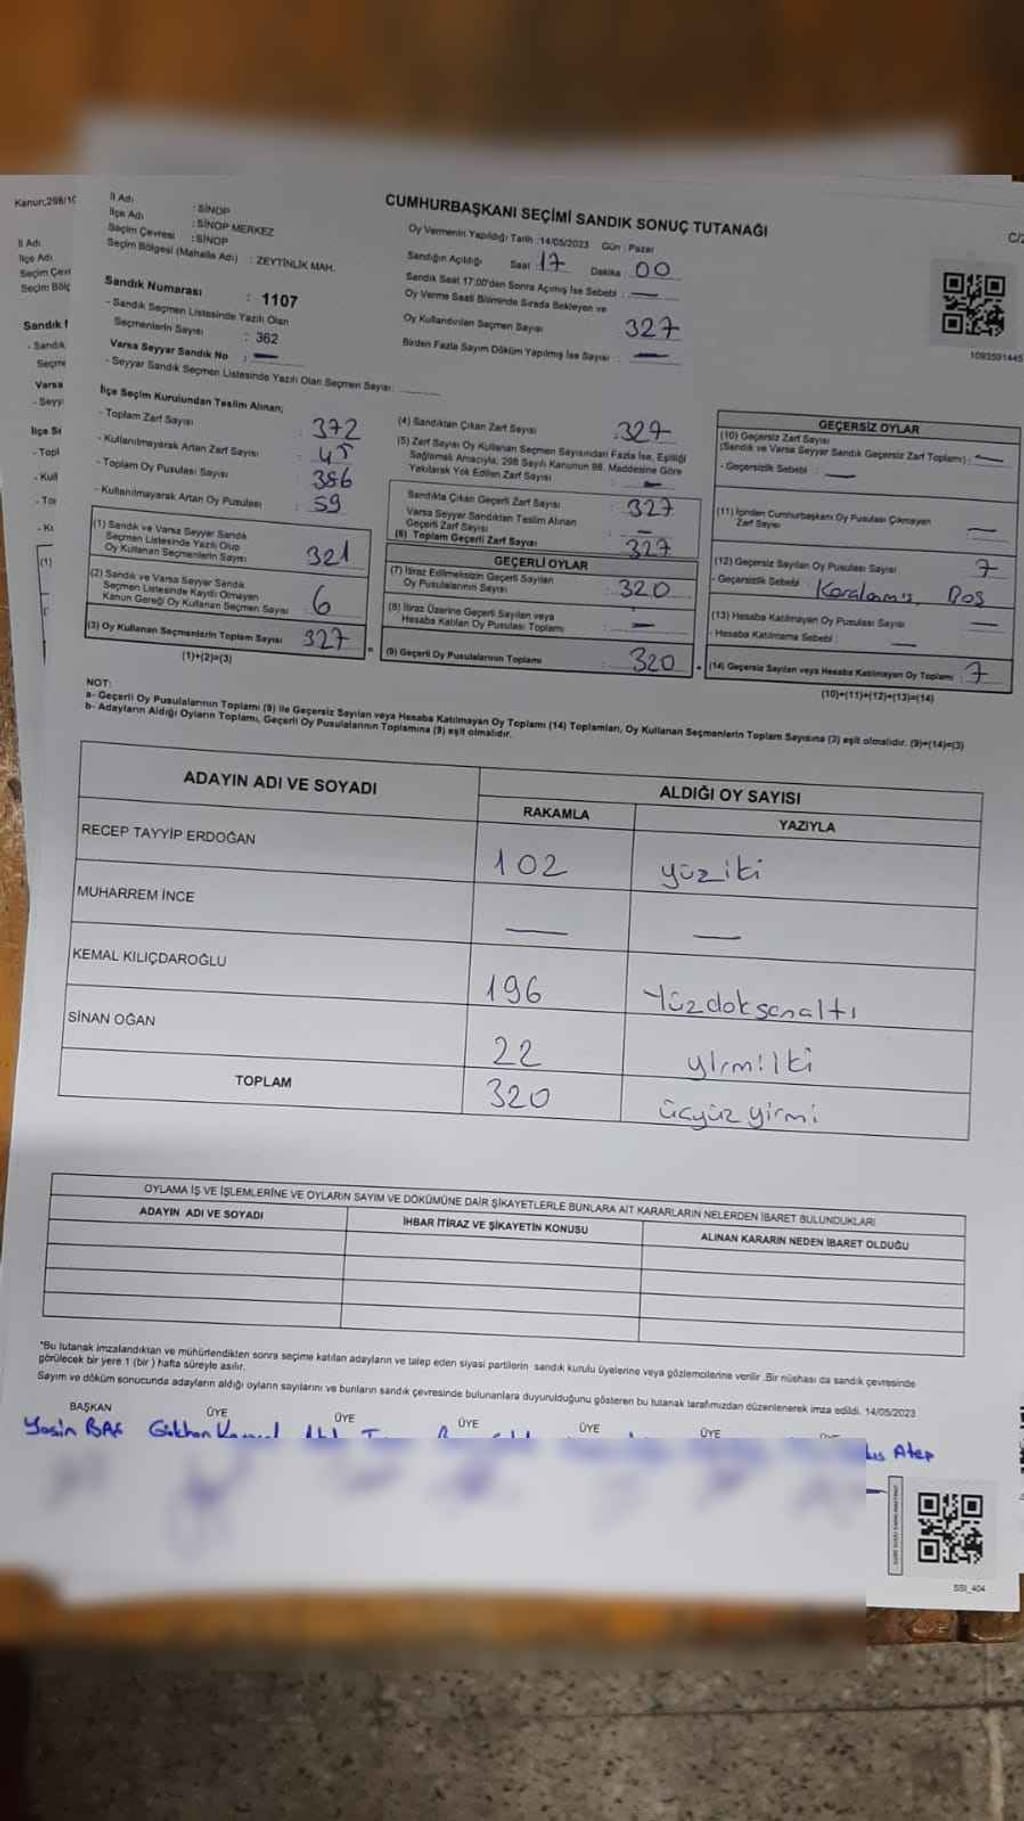 Kanun;298/10
İl Adı : SİNOP
İlçe Adı : SİNOP MERKEZ
Seçim Çevresi : SİNOP
Seçim Bölgesi (Mahalle Adı) : ZEYTİNLİK MAH.
CUMHURBAŞKANI SEÇİMİ SANDIK SONUÇ TUTANAĞI
C/2
Oy Vermenin Yapıldığı Tarih :14/05/2023 Gün : Pazar
Sandığın Açıldığı Saat 17 Dakika : 00
Sandık Saat 17:00'den Sonra Açılmış İse Sebebi : —
Oy Verme Saati Bitiminde Sırada Bekleyen ve
Oy Kullandırılan Seçmen Sayısı 327
Birden Fazla Sayım Döküm Yapılmış İse Sayısı : —
Sandık Numarası : 1107
- Sandık Seçmen Listesinde Yazılı Olan
Seçmenlerin Sayısı : 362
Varsa Seyyar Sandık No : —
- Seyyar Sandık Seçmen Listesinde Yazılı Olan Seçmen Sayısı:
1093591445
İl Adı
İlçe Adı
Seçim Çevr
Seçim Bölg
Sandık N
- Sandık
Seçme
Varsa
- Seyy
İlçe Se
- Topl
- Kull
- To
- Ku
(1)
İlçe Seçim Kurulundan Teslim Alınan;
- Toplam Zarf Sayısı : 372
- Kullanılmayarak Artan Zarf Sayısı : 45
- Toplam Oy Pusulası Sayısı : 386
- Kullanılmayarak Artan Oy Pusulası : 59
(1) Sandık ve Varsa Seyyar Sandık
Seçmen Listesinde Yazılı Olup
Oy Kullanan Seçmenlerin Sayısı 321
(2) Sandık ve Varsa Seyyar Sandık
Seçmen Listesinde Kayıtlı Olmayan
Kanun Gereği Oy Kullanan Seçmen Sayısı 6
(3) Oy Kullanan Seçmenlerin Toplam Sayısı 327
(1)+(2)=(3)
(4) Sandıktan Çıkan Zarf Sayısı : 327
(5) Zarf Sayısı Oy Kullanan Seçmen Sayısından Fazla İse, Eşitliği
Sağlamak Amacıyla, 298 Sayılı Kanunun 98. Maddesine Göre
Yakılarak Yok Edilen Zarf Sayısı —
Sandıkta Çıkan Geçerli Zarf Sayısı : 327
Varsa Seyyar Sandıktan Teslim Alınan
Geçerli Zarf Sayısı : —
(6) Toplam Geçerli Zarf Sayısı 327
GEÇERLİ OYLAR
(7) İtiraz Edilmeksizin Geçerli Sayılan
Oy Pusulalarının Sayısı : 320
(8) İtiraz Üzerine Geçerli Sayılan veya
Hesaba Katılan Oy Pusulası Toplamı : —
(9) Geçerli Oy Pusulalarının Toplamı : 320
GEÇERSİZ OYLAR
(10) Geçersiz Zarf Sayısı
(Sandık ve Varsa Seyyar Sandık Geçersiz Zarf Toplamı) : —
- Geçersizlik Sebebi : —
(11) İçinden Cumhurbaşkanı Oy Pusulası Çıkmayan
Zarf Sayısı —
(12) Geçersiz Sayılan Oy Pusulası Sayısı 7
- Geçersizlik Sebebi : Karalamış, Boş
(13) Hesaba Katılmayan Oy Pusulası Sayısı : —
- Hesaba Katılmama Sebebi : —
(14) Geçersiz Sayılan veya Hesaba Katılmayan Oy Toplamı : 7
(10)+(11)+(12)+(13)=(14)
NOT:
a- Geçerli Oy Pusulalarının Toplamı (9) ile Geçersiz Sayılan veya Hesaba Katılmayan Oy Toplamı (14) Toplamları, Oy Kullanan Seçmenlerin Toplam Sayısına (3) eşit olmalıdır. (9)+(14)=(3)
b- Adayların Aldığı Oyların Toplamı, Geçerli Oy Pusulalarının Toplamına (9) eşit olmalıdır.
ADAYIN ADI VE SOYADI ALDIĞI OY SAYISI
RAKAMLA YAZIYLA
RECEP TAYYİP ERDOĞAN 102 yüziki
MUHARREM İNCE — —
KEMAL KILIÇDAROĞLU 196 Yüzdoksanaltı
SİNAN OĞAN 22 yirmiiki
TOPLAM 320 üçyüz yirmi
OYLAMA İŞ VE İŞLEMLERİNE VE OYLARIN SAYIM VE DÖKÜMÜNE DAİR ŞİKAYETLERLE BUNLARA AİT KARARLARIN NELERDEN İBARET BULUNDUKLARI
ADAYIN ADI VE SOYADI İHBAR İTİRAZ VE ŞİKAYETİN KONUSU ALINAN KARARIN NEDEN İBARET OLDUĞU
*Bu tutanak imzalandıktan ve mühürlendikten sonra seçime katılan adayların ve talep eden siyasi partilerin sandık kurulu üyelerine veya gözlemcilerine verilir .Bir nüshası da sandık çevresinde
görülecek bir yere 1 (bir ) hafta süreyle asılır.
Sayım ve döküm sonucunda adayların aldığı oyların sayılarını ve bunların sandık çevresinde bulunanlara duyurulduğunu gösteren bu tutanak tarafımızdan düzenlenerek imza edildi. 14/05/2023
BAŞKAN ÜYE ÜYE ÜYE ÜYE ÜYE
Yasin Gökhan
SSI_404